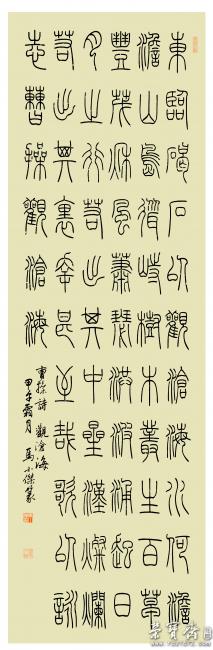 東臨碣石以觀滄海水何澹
澹山島竦峙樹木叢生百草
豐茂秋風蕭瑟洪波涌起日
月之行若出其中星漢燦爛
若出其裏幸甚至哉歌以詠
志曹操觀滄海
曹操詩觀滄海
甲午霜月馬小傑篆